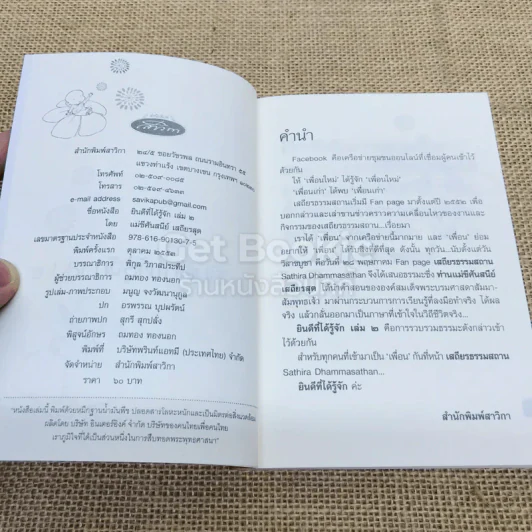 สาวิกา
สำนักพิมพ์สาวิกา ๒๔/๕ ซอยวัชรพล ถนนรามอินทรา ๕๕
แขวงท่าแร้ง เขตบางเขน กรุงเทพฯ
โทรศัพท์ ๐๒-๕๑๙-๐๐๔๘
โทรสาร ๐๒-๕๑๙-๔๖๓๓
e-mail address savikapub@gmail.com
ชื่อหนังสือ ยินดีที่ได้รู้จัก เล่ม ๒
โดย แม่ชีศันสนีย์ เสถียรสุต
เลขมาตรฐานประจำหนังสือ 978-616-90130-7-5
พิมพ์ครั้งแรก ตุลาคม ๒๕๕๓
บรรณาธิการ พิกุล วิภาสประทีป
ผู้ช่วยบรรณาธิการ ถมทอง ทองนอก
รูปเล่ม-ภาพประกอบ มนูญ จงวัฒนานุกูล
ปก อรพรรณ บุปผรัตน์
ถ่ายภาพปก สุกรี สุกปลั่ง
พิสูจน์อักษร ถมทอง ทองนอก
พิมพ์ที่ บริษัทพรินท์แอทมี (ประเทศไทย) จำกัด
จัดจำหน่าย สำนักพิมพ์สาวิกา
ราคา ๖๐ บาท
"หนังสือเล่มนี้ พิมพ์ด้วยหมึกฐานน้ำมันพืช ปลอดสารโลหะหนักและเป็นมิตรต่อสิ่งแวดล้อม
ผลิตโดย บริษัท อินเตอร์อิ๊งค์ จำกัด บริษัทของคนไทยเพื่อคนไทย
เราภูมิใจที่ได้เป็นส่วนหนึ่งในการสืบทอดพระพุทธศาสนา"
คำนำ
Facebook คือเครือข่ายชุมชนออนไลน์ที่เชื่อมผู้คนเข้าไว้
ด้วยกัน
ให้ 'เพื่อนใหม่' ได้รู้จัก 'เพื่อนใหม่'
'เพื่อนเก่า' ได้พบ 'เพื่อนเก่า'
เสถียรธรรมสถานเริ่มมี Fan page มาตั้งแต่ปี ๒๕๕๒ เพื่อ
บอกกล่าวและเล่าขานข่าวคราวความเคลื่อนไหวของงานและ
กิจกรรมของเสถียรธรรมสถาน...เรื่อยมา
เราได้ 'เพื่อน' จากเครือข่ายนี้มากมาย และ 'เพื่อน' ย่อม
อยากให้ 'เพื่อน' ได้รับสิ่งที่ดีที่สุด ดังนั้น ทุกวัน..นับตั้งแต่วัน
วิสาขบูชา คือวันที่ ๒๘ พฤษภาคม Fan page เสถียรธรรมสถาน
Sathira Dhammasathan จึงได้เสนอธรรมะซึ่ง ท่านแม่ชีศันสนีย์
เสถียรสุต ได้นำคำสอนขององค์สมเด็จพระบรมศาสดาสัมมา-
สัมพุทธเจ้า มาผ่านกระบวนการการเรียนรู้ที่ลงมือทำจริง ได้ผล
จริง แล้วกลั่นออกมาเป็นภาษาที่เข้าใจในวิถีชีวิตจริง...
ยินดีที่ได้รู้จัก เล่ม ๒ คือการรวบรวมธรรมะดังกล่าวเข้า
ไว้ด้วยกัน
สำหรับทุกคนที่เข้ามาเป็น 'เพื่อน' กันที่หน้า เสถียรธรรมสถาน
Sathira Dhammasathan...
ยินดีที่ได้รู้จัก ค่ะ
สำนักพิมพ์สาวิกา